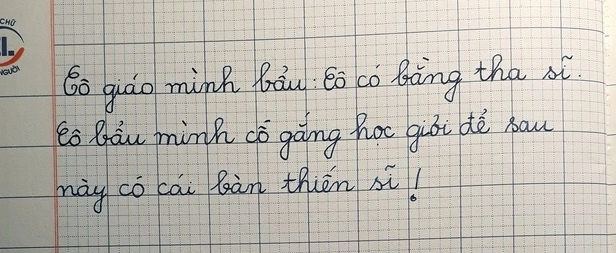 CHỮ
L
NGƯỜI
Cô giáo mình bảu: Cô có bằng tha sĩ.
Cô bảu mình cố gắng học giỏi để sau
này có cái bàn thiến sĩ!